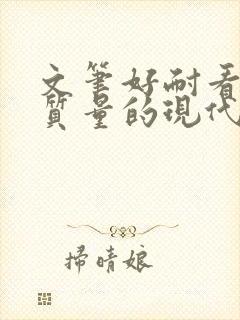 文筆好耐看
質量的現代
掃晴娘